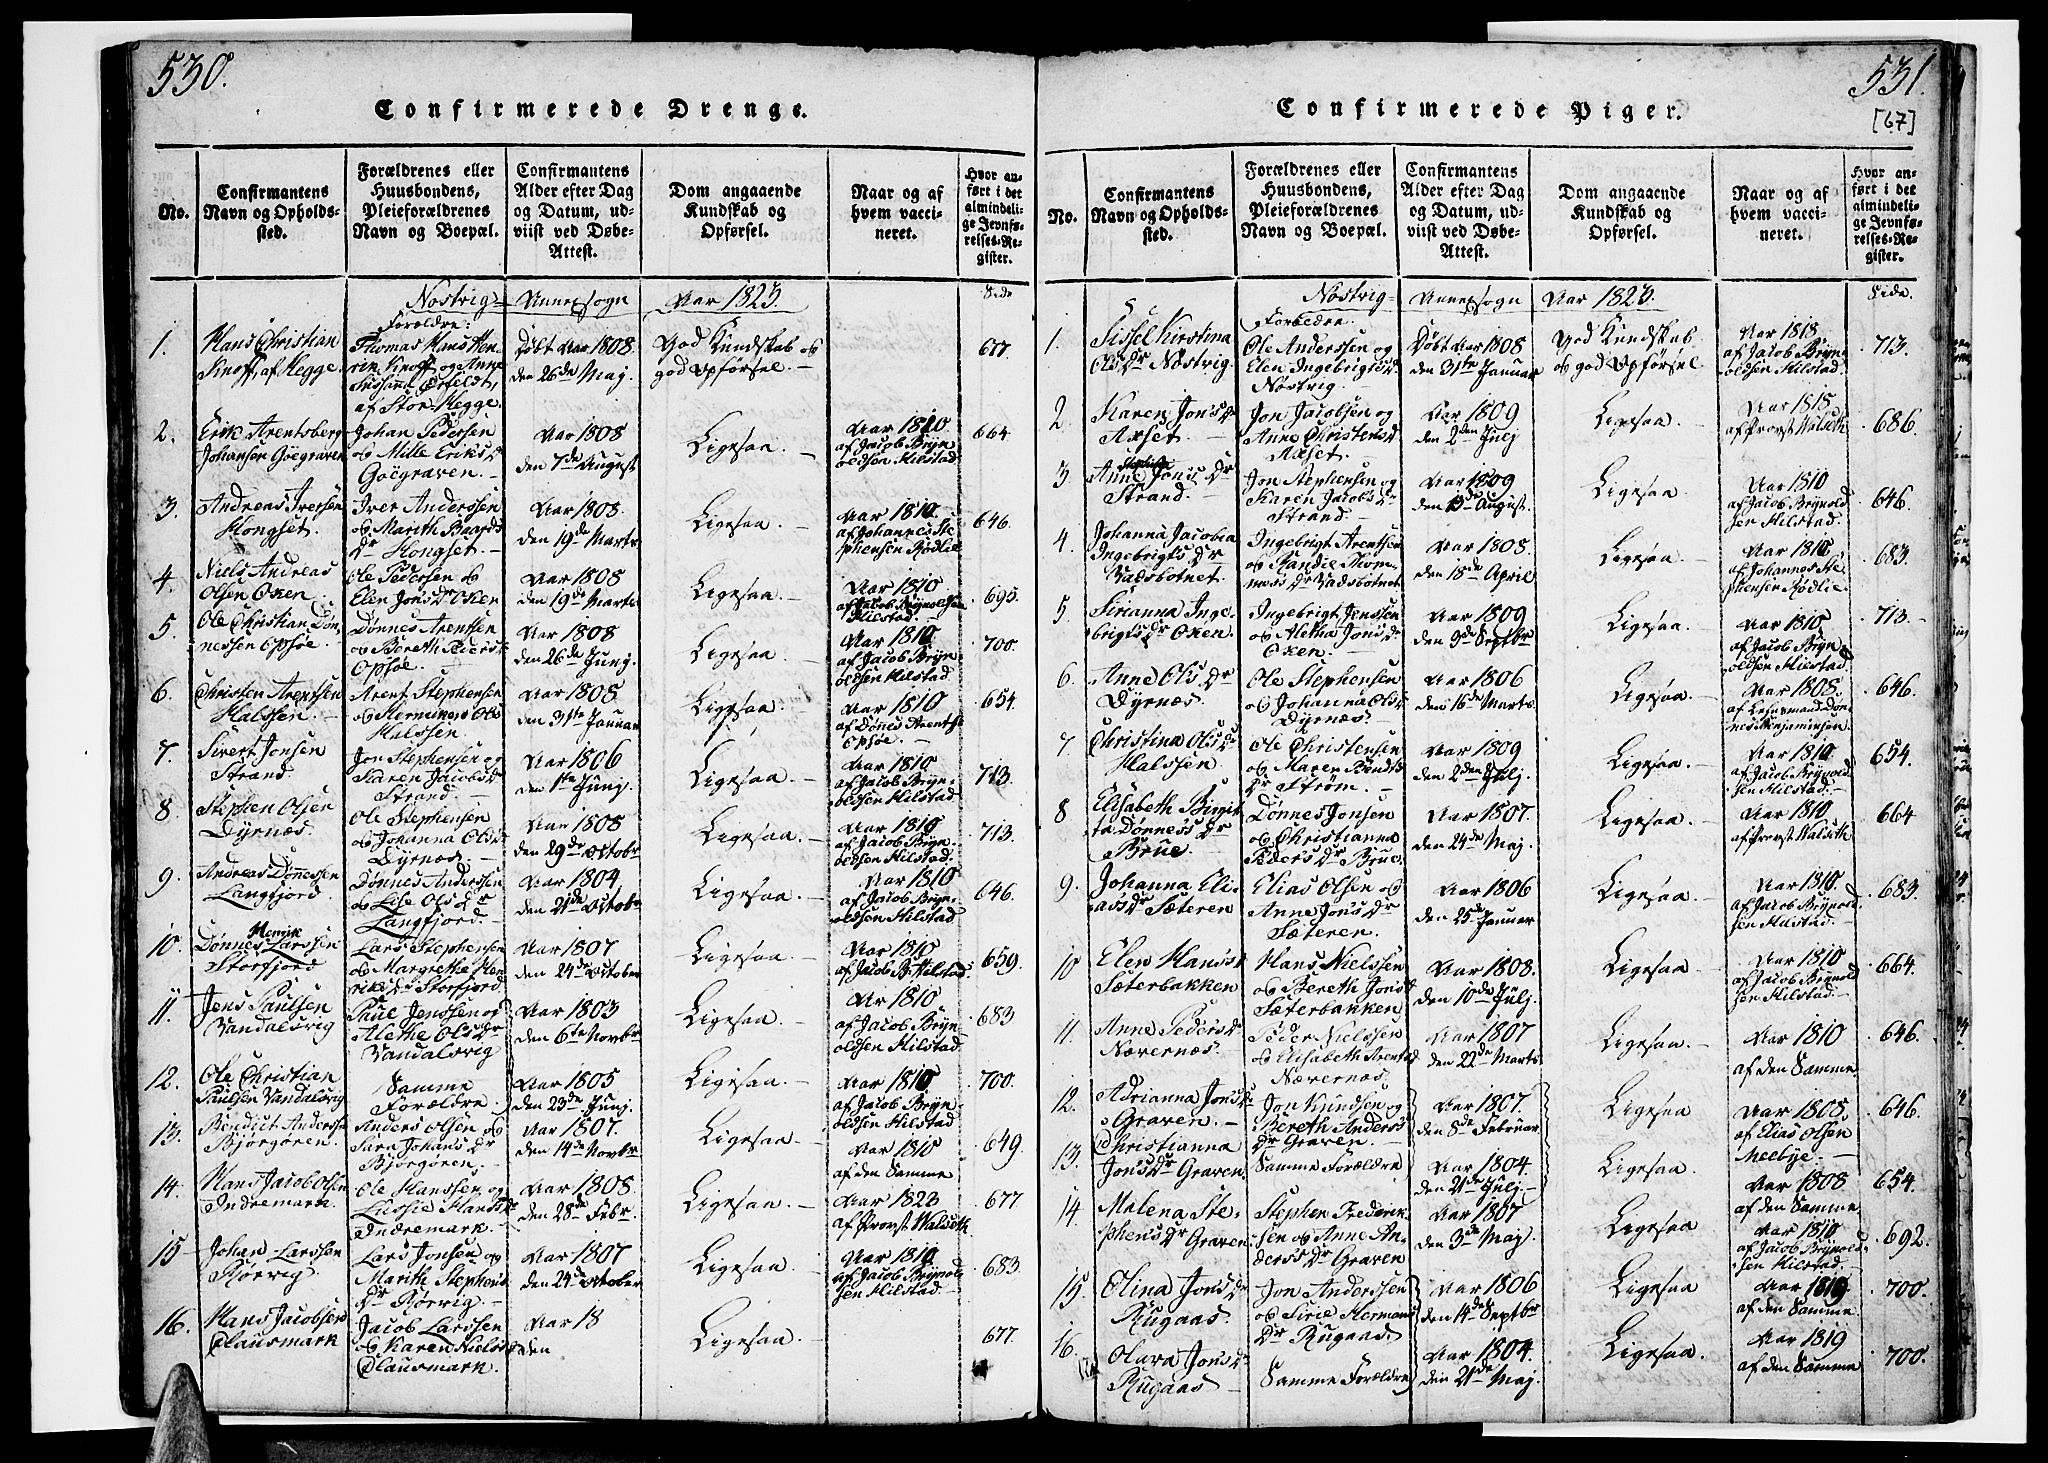 530.
Confirmerede Drenge.
No.
Confirmantens
Navn og Opholds-
sted.
Forældrenes eller
Huusbondens,
Pleieforældrenes
Navn og Boepæl.
Confirmantens
Alder efter Dag
og Datum, ud-
viist ved Døbe-
Attest.
Dom angaaende
Kundskab og
Opførsel.
Naar og af
hvem vacci-
neret.
Hvor an-
ført i det
almindeli-
ge Jevnfø-
relses-Re-
gister.
Nostvig Annexsogn Aar 1823.
Side
1. Hans Christian
Knoff, af Hegge.
Forældre:
Thomas Hans Hen-
rik Knoff og Anne
Susanna Ørfeldt,
af Stor-Hegge.
Døbt Aar 1808.
den 26de Maj.
God Kundskab og
god Opførsel.
677.
2. Erik Arentsberg
Johansen Goegraven
Johan Pedersen
og Mille Eriks Dr
Goegraven.
Aar 1808
den 7de August
Ligesaa.
Aar 1810
af Jacob Bryn
oldsen Hilstad
664
3. Andreas Iversen
Hongset.
Iver Anderssen
og Marith Baards
Dr Hongset.
Aar 1808.
den 19de Marts
Ligesaa.
Aar 1810
af Johannes Ste
phensen Rødlie
646.
4. Niels Andreas
Olsen Oxen.
Ole Pedersen og
Elen Jons Dr Oxen
Aar 1808
den 19de Marts
Ligesaa.
Aar 1810
af Jacob Brynoldsen
Hilstad.
695.
5. Ole Christian Døn-
nessen Opsøe.
Dønnes Arentsen
og Bereth
Opsøe
Aar 1808
den 26de Junj.
Ligesaa
Aar 1810
af Jacob Bryn
oldsen Hilstad
700.
6. Christen Arentsen
Halssen.
Arent Stephensen
og Olsdr
Halssen.
Aar 1808
den 31ste Januar
Ligesaa.
Aar 1810
af Dønes Arents.
Opsøe.
654.
7. Sivert Jonsen
Strand.
Jon Stephensen og
Karen Jacobsdr
Strand.
Aar 1806
den 1ste Junj.
Ligesaa.
Aar 1810
af Jacob Bryn-
oldsen Hilstad
713.
8. Stephen Olsen
Dyrnæs.
Ole Stephensen
og Johanna Olsdr
Dyrnæs.
Aar 1808
den 29de Octobr
Ligesaa.
Aar 1810
af Jacob Bryn-
oldsen Hilstad.
713.
9. Andreas Dønessen
Langfjord.
Dønnes Anderssen
og Lise Ols Dr
Langfjord.
Aar 1804
den 21de Octobr
Ligesaa.
Aar 1810
af Jacob Bryn-
oldsen Hilstad.
646.
10. Dønnes Henrik Larssen
Storfjord
Lars Stephensen
og Margrethe Hen
riks Dr Storfjord
Aar 1807
den 24de October
Ligesaa.
Aar 1810
af Jacob B. Hilstad.
659.
11. Jens Paulsen
Vandalsvig
Paul Jenssen og
Alethe Ols Dr
Vandalsvig
Aar 1803
den 6te Novbr
Ligesaa.
Aar 1810
af Jacob Bryn
oldsen Hilstad
683
12. Ole Christian
Paulsen Vandalsvig
Samme
Forældre.
Aar 1805
den 23de Junj.
Ligesaa.
Aar 1810
af Jacob Bryn
oldsen Hilstad
700.
13. Bendict Anderss.
Bjørgøren.
Anders Olsen og
Sara Johans Dr
Bjørgøren.
Aar 1807.
den 14de Novbr
Ligesaa.
Aar 1810
af den Samme
649.
14. Hans Jacob Olsen
Indremark
Ole Hanssen og
Lussie Hansdr
Indremark.
Aar 1808.
den 28de Febr.
Ligesaa.
Aar 1823
af Provst Walseth
677
15 Johan Larssen
Rørvig
Lars Jonsen og
Marith Stephens
Dr Rørvig.
Aar 1807
den 24de October
Ligesaa.
Aar 1810
af Jacob Brynold
sen Hilstad.
683.
16. Hans Jacobsen
Clausmark
Jacob Larssen
og Karen Nielsd
Clausmark.
Aar 18
den
Ligesaa.
677.
531.
[67]
Confirmerede Piger.
No.
Confirmantens
Navn og Opholds-
sted.
Forældrenes eller
Huusbondens,
Pleieforældrenes
Navn og Boepæl.
Confirmantens
Alder efter Dag
og Datum, ud-
viist ved Døbe-
Attest.
Dom angaaende
Kundskab og
Opførsel.
Naar og af
hvem vacci-
neret.
Hvor an-
ført i det
almindeli-
ge Jevnfø-
relses-Re-
gister.
Nostvig Annexsogn Aar 1823.
Side.
1. Sissel Kirstina
Ols Dr Nostvig.
Forældre.
Ole Anderssen og
Elen Ingebrigts Dr
Nostvig.
Døbt Aar 1808
den 31ste Januar
God Kundskab
og god Opførsel.
Aar 1818.
af Jacob Bryn-
oldsen Hilstad.
713.
2 Karen Jons Dr
Axset.
Jon Jacobsen og
Anne Christensd
Axset.
Aar 1809
den 2den Julj
Ligesaa
Aar 1818
af Provst Walseth
686.
3 Anne Jons Dr
Strand.
Jon Stephensen og
Karen Jacobs Dr
Strand.
Aar 1809
den 13de August.
Ligesaa.
Aar 1810
af Jacob Brynold
sen Hilstad.
646.
4. Johanna Jacobia
Ingebrigts Dr
Vadsbotnet.
Ingebrigt Arentsen
og Randie Thom
mess Dr Vadsbotnet
Aar 1808.
den 18de April
Ligesaa.
Aar 1810
af Johannes Ste
phensen Rødlie
683.
5. Sirianna Inge-
brigts Dr Oxen.
Ingebrigt Jenssen
og Aletha Jons Dr
Oxen.
Aar 1809
den 9de Septbr
Ligesaa.
Aar 1810
af Jacob Bryn
oldsen Hilstad.
713.
6. Anne Ols Dr
Dyrnæs.
Ole Stephensen
og Johanna Olsd
Dyrnæs.
Aar 1806
den 16de Marts
Ligesaa.
Aar 1808.
af Lensmand Døn-
nes Benjaminsen.
646.
7 Christina Ols Dr
Halssen.
Ole Christensen
og Maren Bendts
Dr Strøm.
Aar 1809
den 2den Julj.
Ligesaa.
Aar 1810
af Jacob Brynold
sen Hilstad.
654.
8 Elisabeth Birgit
ta Dønness Dr
Brue.
Dønnes Jonsen
og Christianna
Peders Dr Brue.
Aar 1807.
den 24de Maj.
Ligesaa.
Aar 1810
af Provst Walseth
664
9. Johanna Eli-
as Dr Sæteren
Elias Olsen og
Anne Jons Dr
Sæteren.
Aar 1806
den 25de Januar
Ligesaa.
Aar 1810.
af Jacob Brynold
sen Hilstad.
683.
10 Elen Hanss.
Sæterbakken
Hans Nielssen
og Bereth Jonsd
Sæterbakken
Aar 1808.
den 10de Julj.
Ligesaa.
Aar 1810
af Jacob Brynold
sen Hilstad.
664.
11. Anne Peders Dr
Nævernæs.
Peder Nielssen
og Elisabeth Arentsd
Nævernæs.
Aar 1807
den 22de Marts
Ligesaa.
Aar 1810
af den Samme.
646.
12. Adrianna Jons Dr
Graven.
Jon Knudsen og
Bereth Anders
Dr Graven.
Aar 1807.
den 8de Februar
Ligesaa
Aar 1808
af Elias Olsen
Meebye.
646.
13. Christianna
Jons Dr Graven.
Samme Forældre
Aar 1804.
den 21de Julj.
Ligesaa
Aar 1808
af den Samme
654.
14. Malena Ste-
phens Dr Graven.
Stephen Frederik-
sen og Anne An-
derss Dr Graven
Aar 1807
den 3de Maj.
Ligesaa
Aar 1810
af Jacob Brynold-
sen Hilstad.
692.
15. Olina Jons Dr
Rugaas.
Jon Anderssen
og Sirie Hermans
Dr Rugaas.
Aar 1806
den 14de Septbr
Ligesaa
Aar 1819
af den Samme
700.
16. Olava Jons Dr
Rugaas
Samme Forældre
Aar 1804.
den 21de Maj.
Ligesaa.
Aar 1819
af den Samme
700.